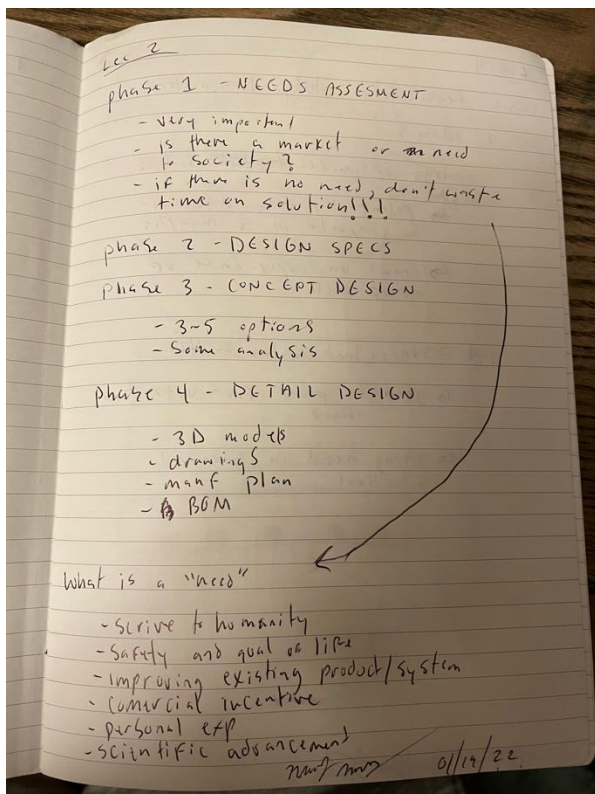 Lec 2
phase 1 - NEEDS ASSESMENT
- very important
- is there a market or need
to society?
- if there is no need, don't waste
time on solution!!!
phase 2 - DESIGN SPECS
phase 3 - CONCEPT DESIGN
- 3-5 options
- Some analysis
phase 4 - DETAIL DESIGN
- 3D models
- drawings
- manf plan
- BOM
What is a "need"
- scrive to humanity
- Safety and qual of life
- Improving existing product/system
- comercial incentive
- personal exp
- scientific advancement
01/19/22